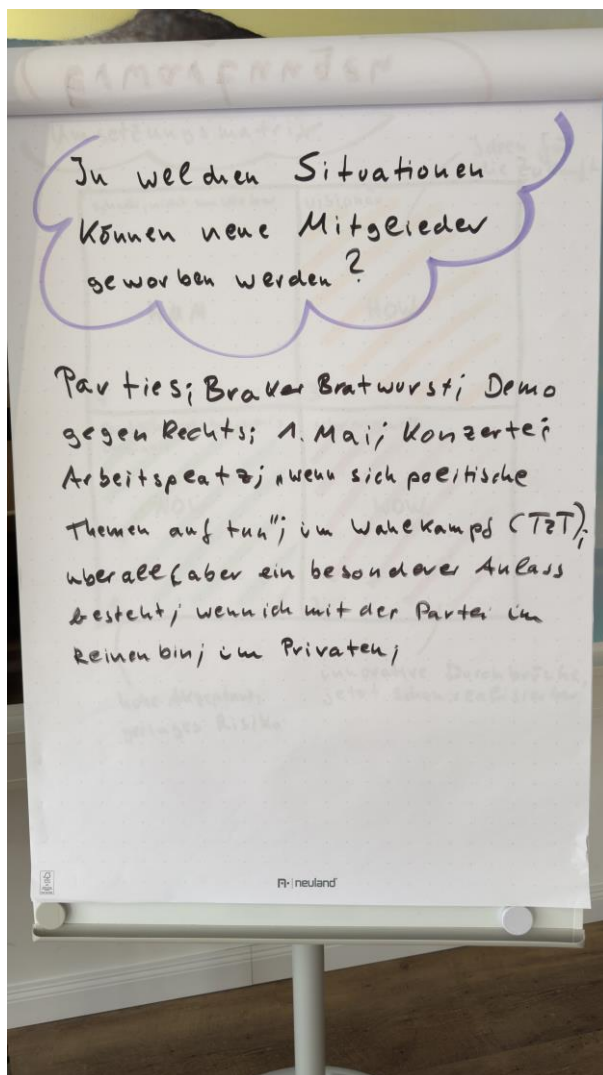 In welchen Situationen
können neue Mitglieder
geworben werden?
Parties; Braker Bratwurst; Demo
gegen Rechts; 1. Mai; Konzerte;
Arbeitsplatz; „wenn sich politische
Themen auf tun"; im Wahlkampf (TzT);
überall (aber ein besonderer Anlass
besteht; wenn ich mit der Partei im
Reinen bin; im Privaten;
neuland